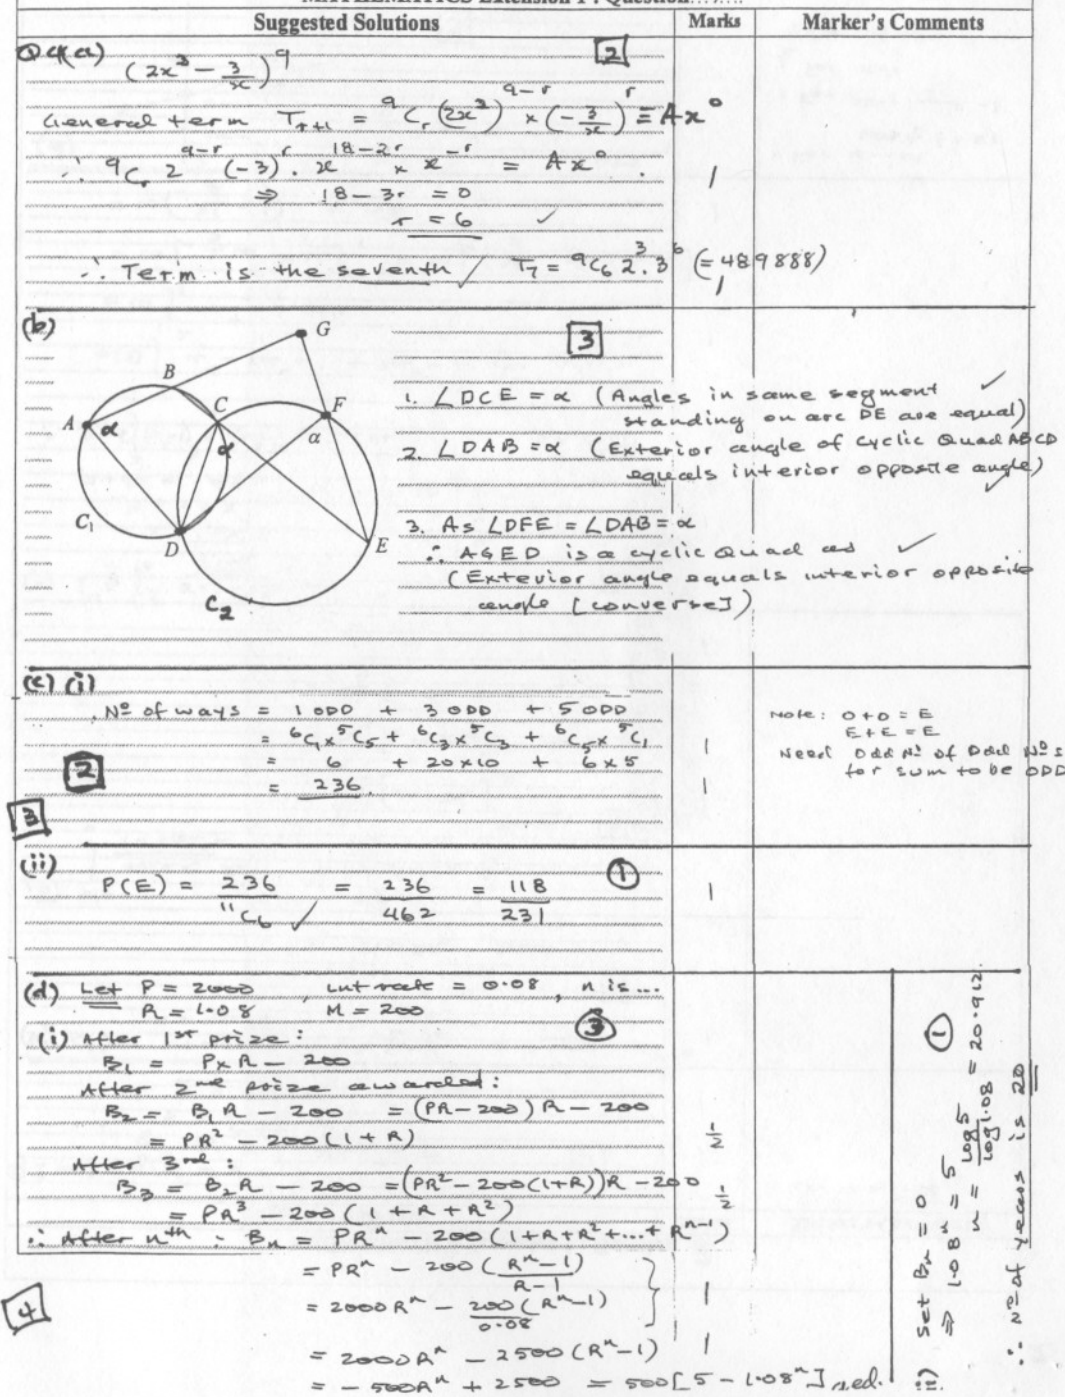 MATHEMATICS Extension 1 : Question........
Suggested Solutions Marks Marker's Comments
Q4(a) (2x² - 3/x)⁹ [2]
General term T_{r+1} = ⁹C_r (2x²)^{9-r} × (-3/x)^r ≡ Ax⁰
∴ ⁹C_r 2^{9-r} (-3)^r . x^{18-2r} × x^{-r} = Ax⁰ . 1
⇒ 18 - 3r = 0
r = 6 ✓
∴ Term is the seventh ✓ T₇ = ⁹C₆ 2³.3⁶ (= 489888)
1
(b) [3]
G
B
A α
C
α
F
α
C₁
D
E
C₂
1. ∠DCE = α (Angles in same segment ✓
standing on arc DE are equal)
2. ∠DAB = α (Exterior angle of cyclic Quad ABCD
equals interior opposite angle) ✓
3. As ∠DFE = ∠DAB = α
∴ AGED is a cyclic Quad as ✓
(Exterior angle equals interior opposite
angle [converse])
(c) (i)
Nº of ways = 1 ODD + 3 ODD + 5 ODD
= ⁶C₁ × ⁵C₅ + ⁶C₃ × ⁵C₃ + ⁶C₅ × ⁵C₁ 1
[2] = 6 + 20×10 + 6×5
= 236. 1
[3]
Note: O+O = E
E+E = E
Need Odd Nº of Odd Nºs
for sum to be ODD
(ii)
P(E) = 236/¹¹C₆ ✓ = 236/462 = 118/231 ① 1
(d) Let P = 2000 , int rate = 0.08 , n is ...
R = 1.08 M = 200
(i) After 1st prize: ③
B₁ = P×R - 200
After 2nd prize awarded:
B₂ = B₁R - 200 = (PR-200)R - 200
= PR² - 200(1+R) ½
After 3rd :
B₃ = B₂R - 200 = (PR² - 200(1+R))R - 200 ½
= PR³ - 200(1+R+R²)
∴ After nth : Bₙ = PRⁿ - 200(1+R+R²+...+R^{n-1})
= PRⁿ - 200(Rⁿ-1)/(R-1)
[4] = 2000Rⁿ - 200(Rⁿ-1)/0.08 } 1
= 2000Rⁿ - 2500(Rⁿ-1) 1
= -500Rⁿ + 2500 = 500[5 - 1.08ⁿ] qed.
ii) Set Bₙ = 0 ①
⇒ 1.08ⁿ = 5
n = log 5/log 1.08 = 20.912.
∴ Nº of years is 20